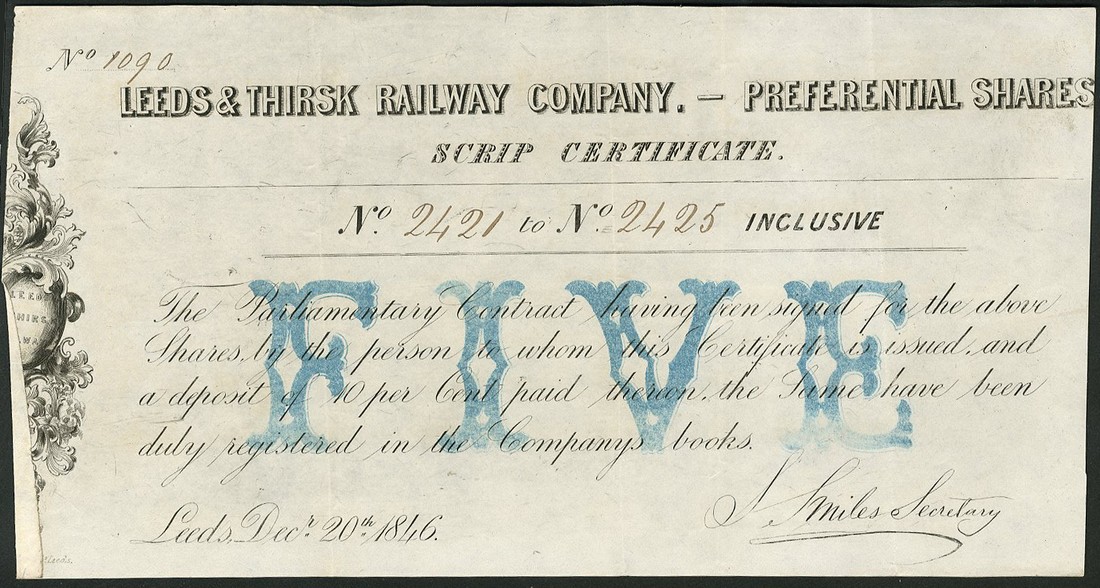 No 1090
LEEDS & THIRSK RAILWAY COMPANY. — PREFERENTIAL SHARES
SCRIP CERTIFICATE.
No. 2421 to No 2425 INCLUSIVE
FIVE
The Parliamentary Contract having been signed for the above
Shares, by the person to whom this Certificate is issued, and
a deposit of 10 per Cent paid thereon, the Same have been
duly registered in the Companys books.
Leeds, Decr. 20th 1846.
S. Smiles Secretary
LEEDS
HIRS
WA
Leeds.